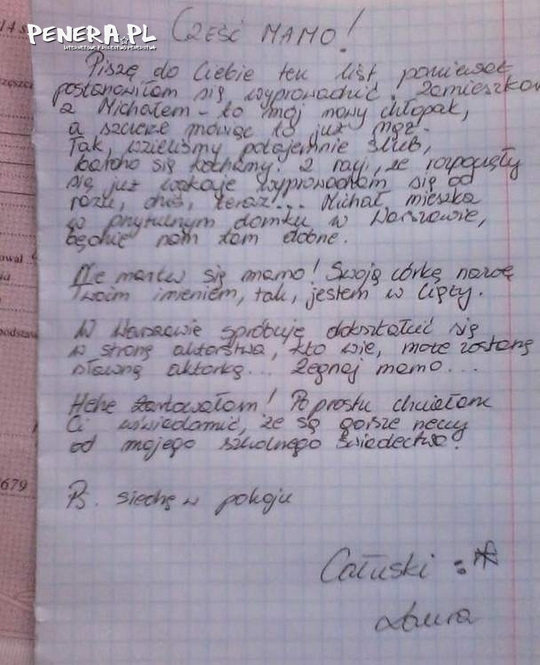 PENERA.PL
INTERNETOWE KRÓLESTWO PENERSTWA
CZEŚĆ MAMO!
Piszę do Ciebie ten list ponieważ
postanowiłam się wyprowadzić. Zamieszkam
z Michałem - to mój nowy chłopak,
a szczerze mówiąc to już mąż.
Tak, wzieliśmy potajemnie ślub,
bardzo się kochamy. Z racji, że rozpoczęły
się już wakacje wyprowadzam się od
razu, dziś, teraz... Michał mieszka
w przytulnym domku w Warszawie,
będzie nam tam dobrze.
Nie martw się mamo! Swoją córkę nazwę
Twoim imieniem, tak, jestem w ciąży.
W Warszawie spróbuję dokształcić się
w stronę aktorstwa, kto wie, może zostanę
sławną aktorką... Żegnaj mamo...
Hehe żartowałam! Po prostu chciałam
Ci uświadomić, że są gorsze rzeczy
od mojego szkolnego świadectwa.
Ps. siedzę w pokoju
Całuski :*
Laura
14
679